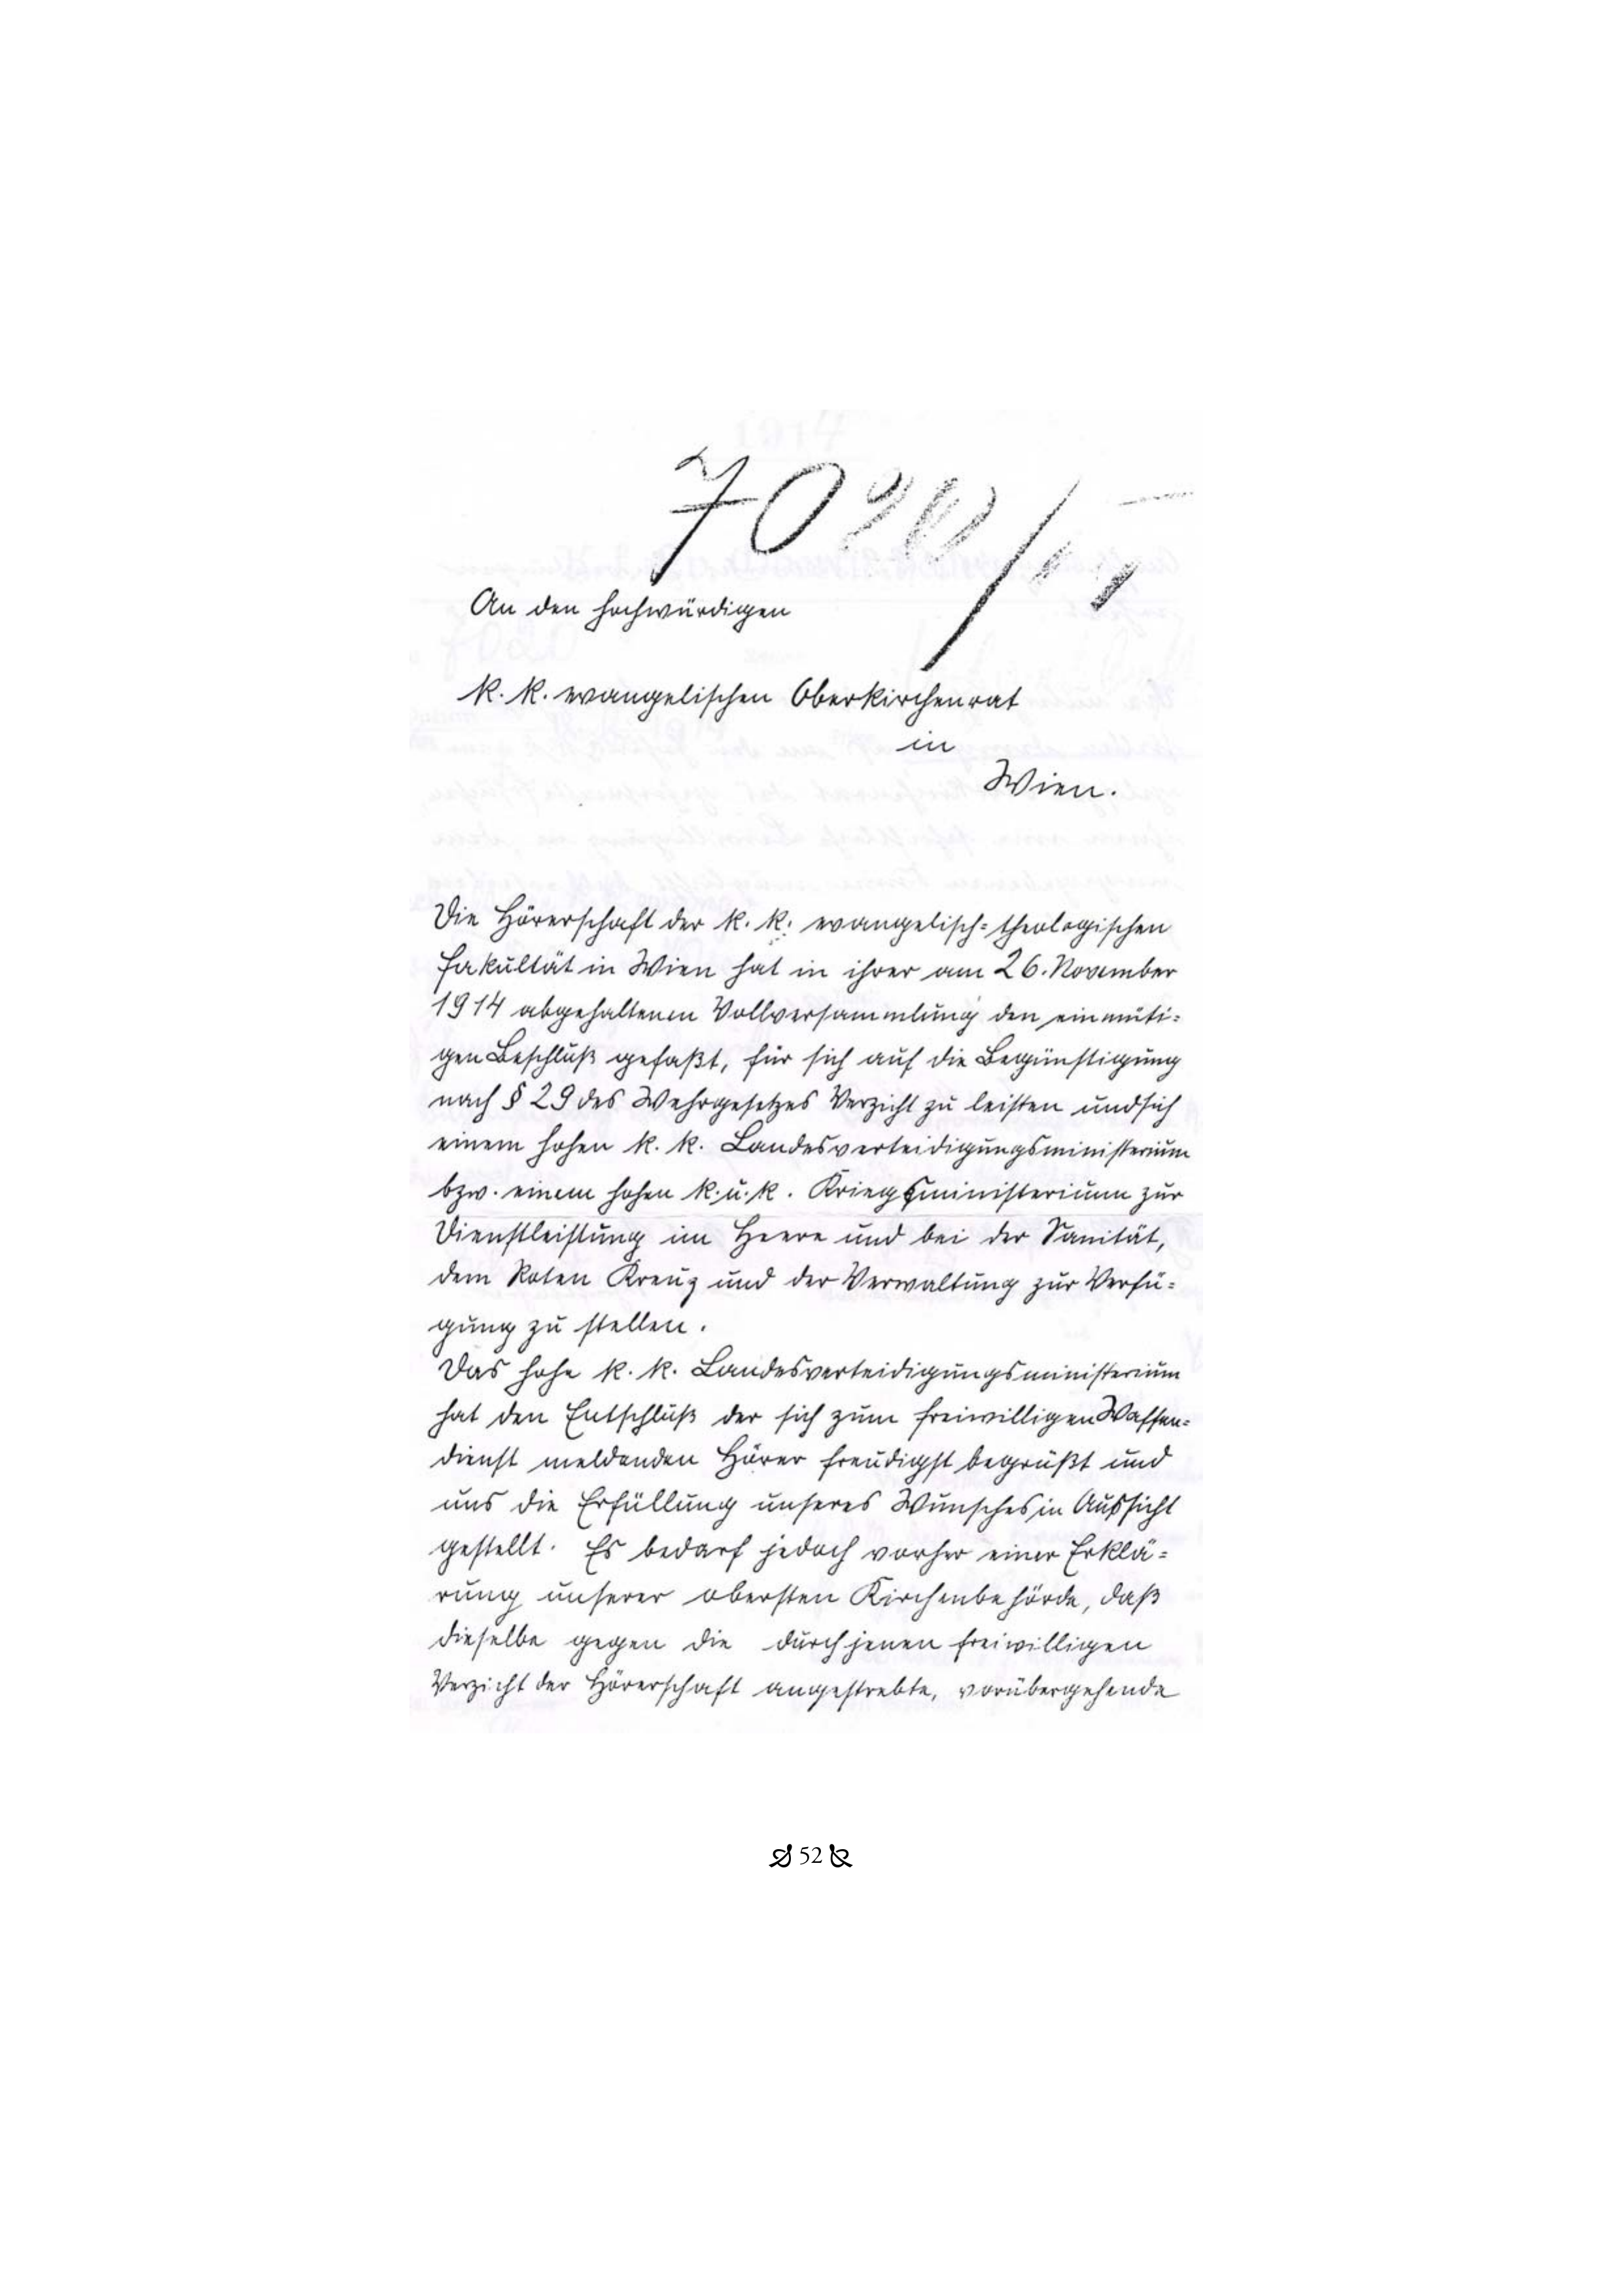 70
An den hochwürdigen
k. k. evangelischen Oberkirchenrat
in
Wien.
Die Hörerschaft der k. k. evangelisch-theologischen
Fakultät in Wien hat in ihrer am 26. November
1914 abgehaltenen Vollversammlung den einmüti-
gen Beschluß gefaßt, für sich auf die Begünstigung
nach § 29 des Wehrgesetzes Verzicht zu leisten und sich
einem hohen k. k. Landesverteidigungsministerium
bzw. einem hohen k. u. k. Kriegsministerium zur
Dienstleistung im Heere und bei der Sanität,
dem Roten Kreuz und der Verwaltung zur Verfü-
gung zu stellen.
Das hohe k. k. Landesverteidigungsministerium
hat den Entschluß der sich zum freiwilligen Waffen-
dienst meldenden Hörer freudigst begrüßt und
uns die Erfüllung unseres Wunsches in Aussicht
gestellt. Es bedarf jedoch vorher einer Erklä-
rung unserer obersten Kirchenbehörde, daß
dieselbe gegen die durch jenen freiwilligen
Verzicht der Hörerschaft angestrebte, vorübergehende
52